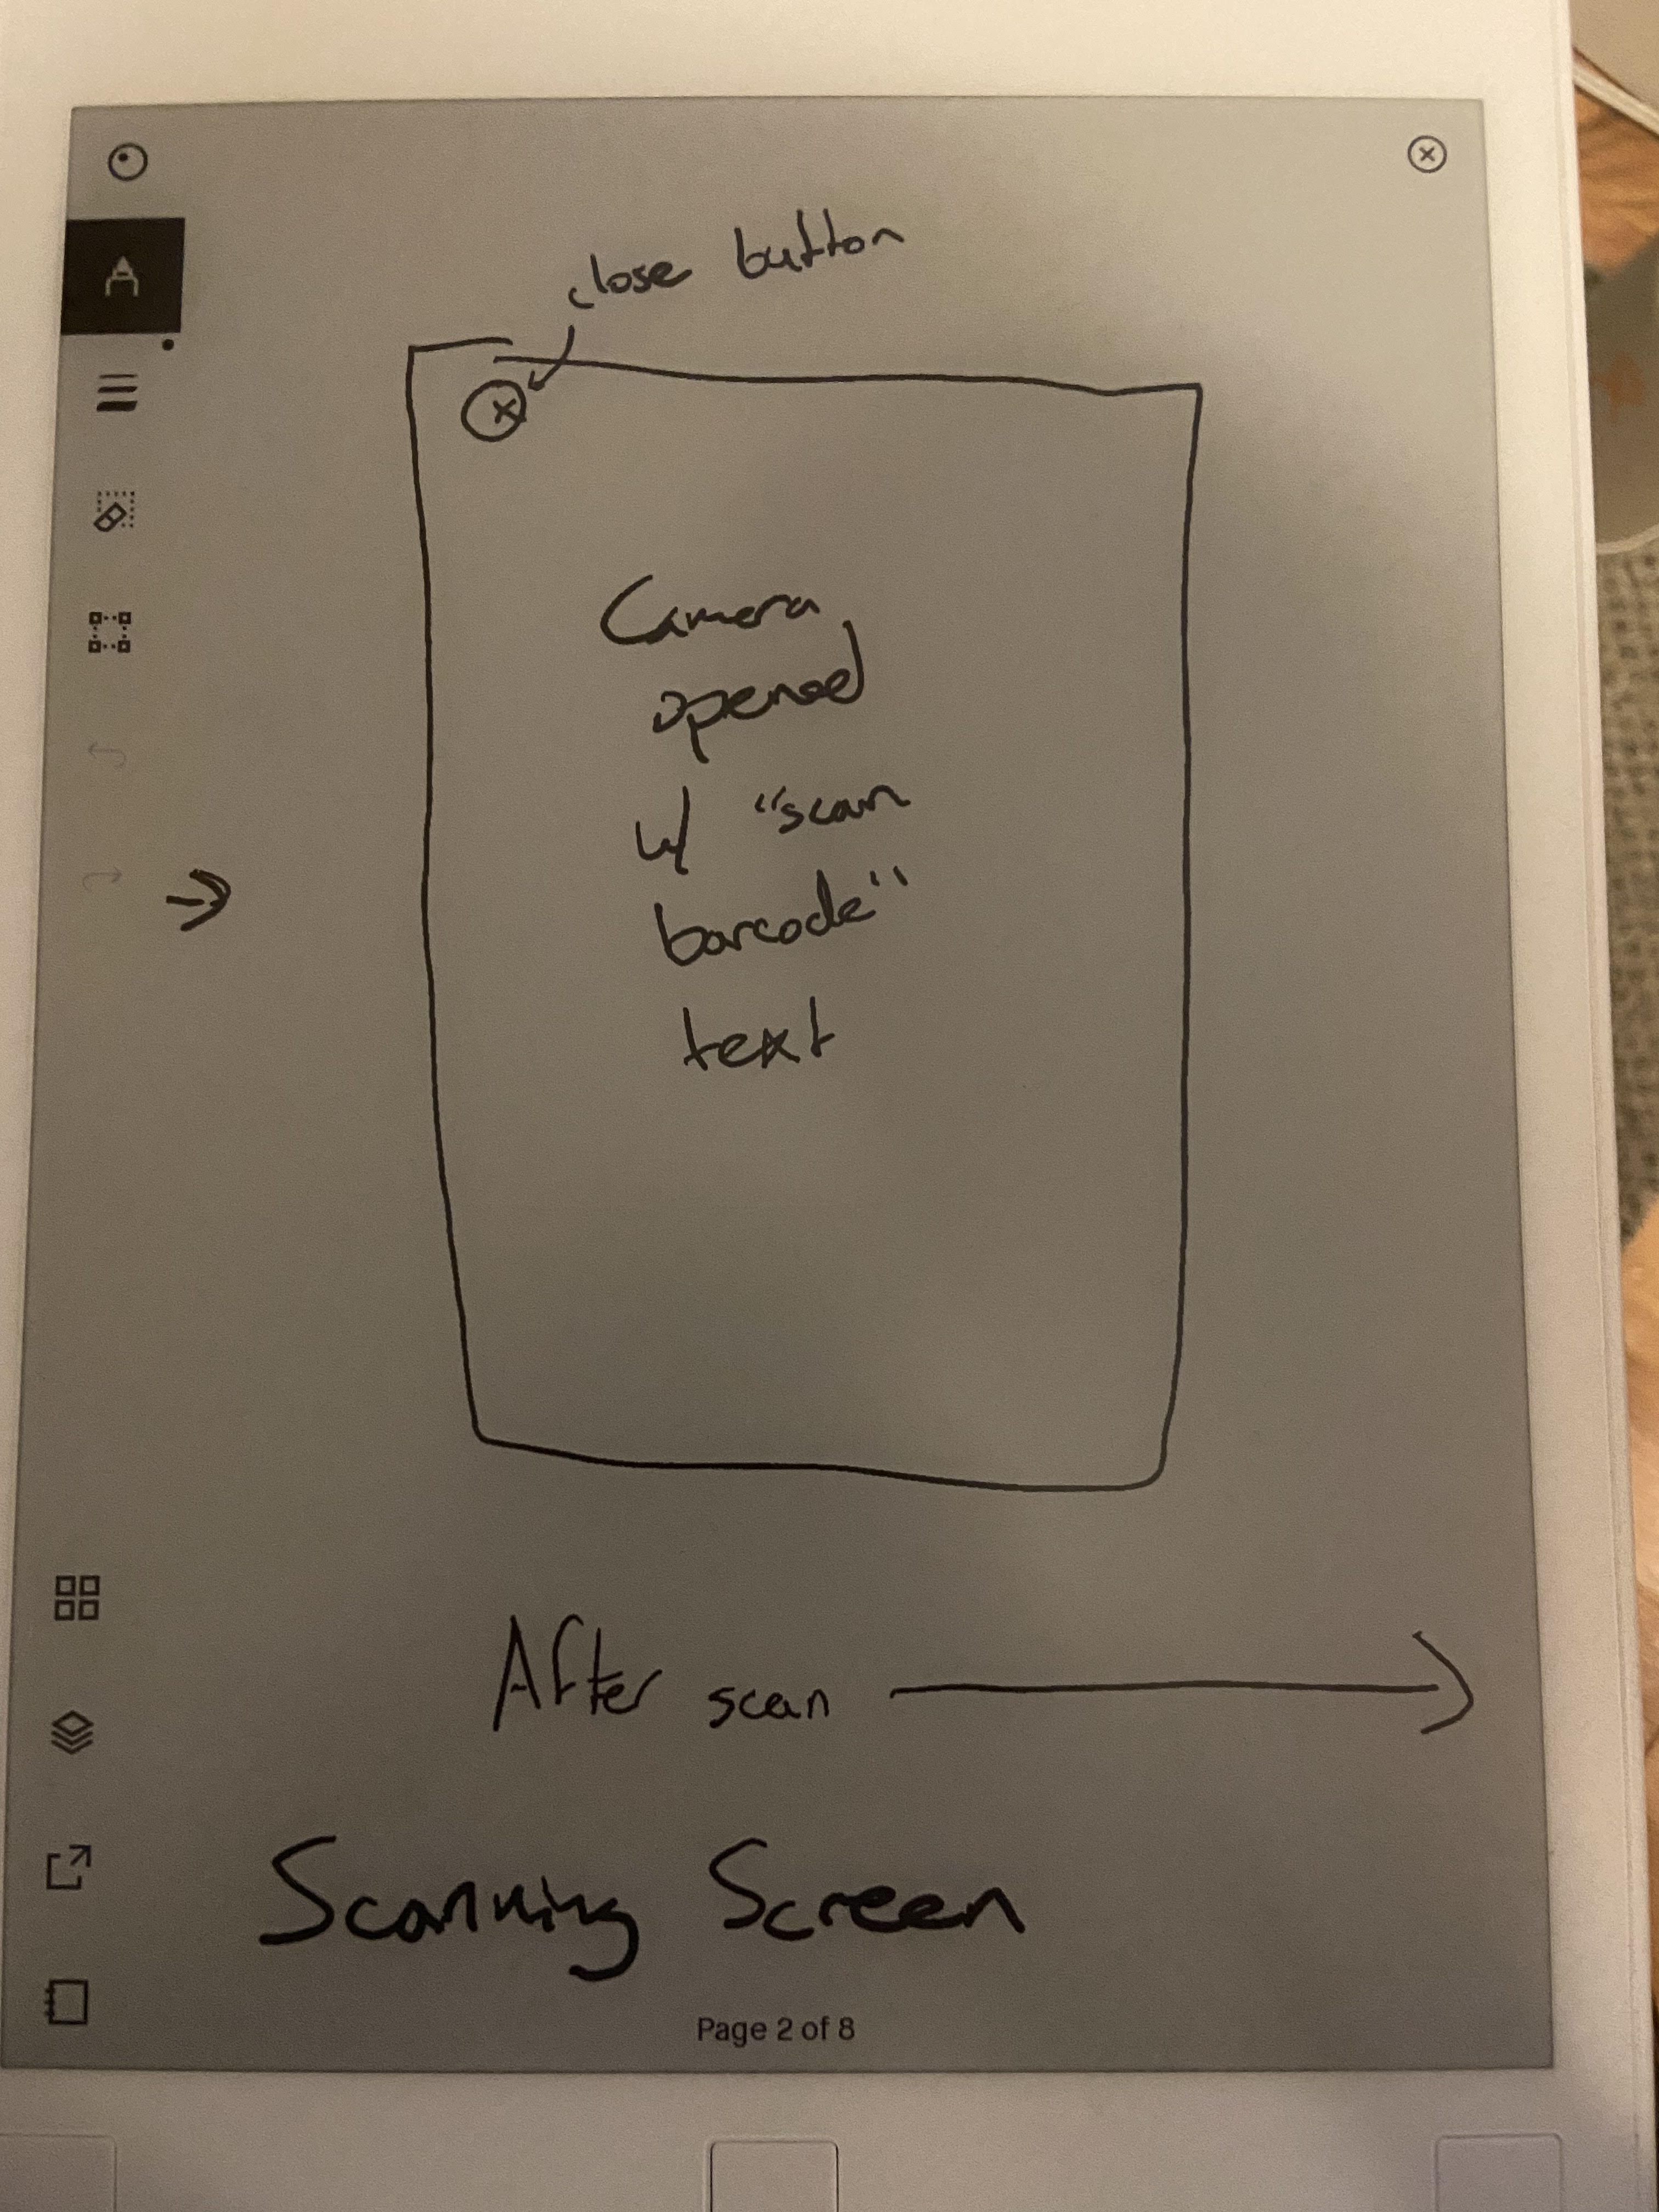 close button
Camera
opened
w/ "scan
barcode"
text
After scan
Scanning Screen
Page 2 of 8